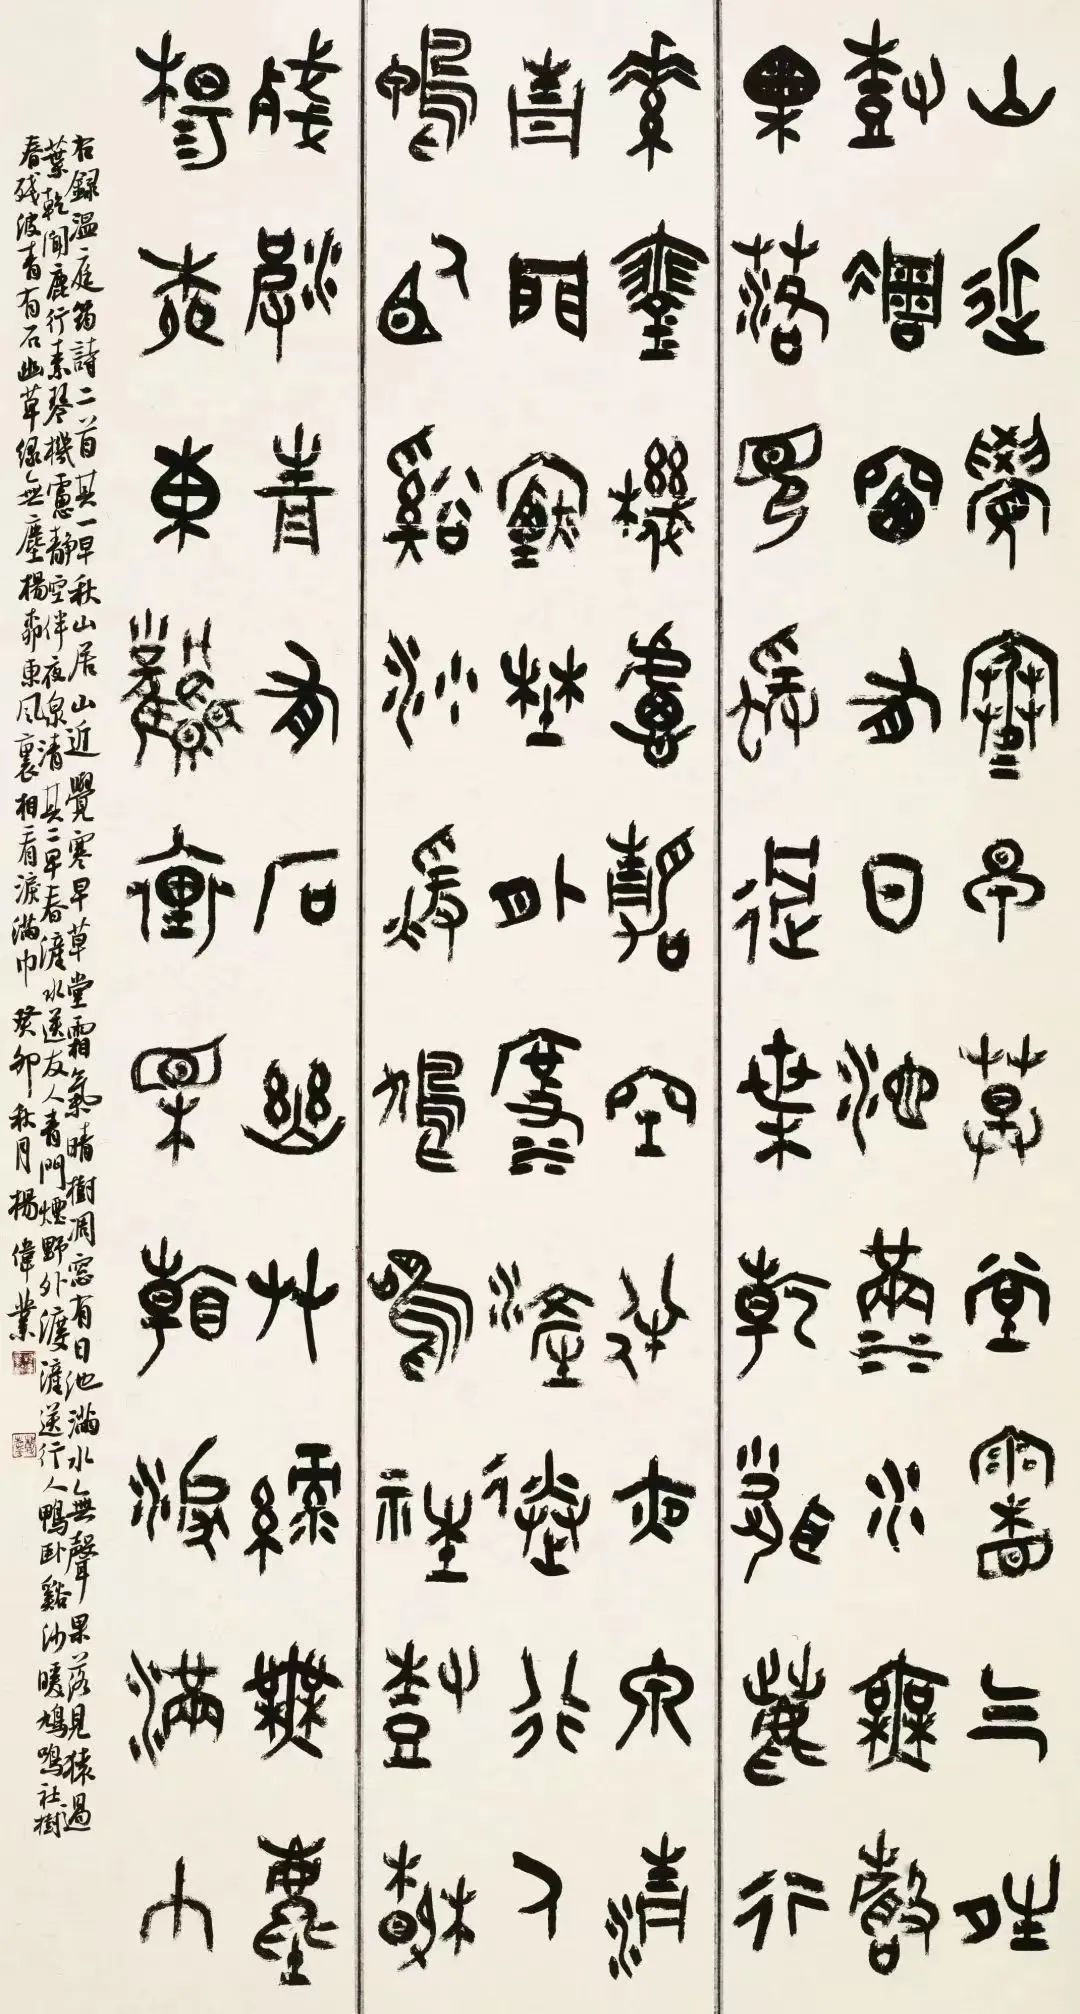 山近覺寒早草堂霜气晴
樹凋窗有日池滿水無聲
果落見猨過葉乾聞鹿行
素琴機慮靜空伴夜泉清
青門煙野外渡滻送行人
鴨臥谿沙暖鳩鳴社樹春
殘波青有石幽艸綠無塵
楊柰東風裏相看淚滿巾
右錄溫庭筠詩二首其一早秋山居山近覺寒早草堂霜氣晴樹凋窓有日池滿水無聲果落見猿過
葉乾聞鹿行素琴機慮靜空伴夜泉清其二早春滻水送友人青門煙野外渡滻送行人鴨臥谿沙暖鳩鳴社樹
春殘波青有石幽草綠無塵楊柰東風裏相看淚滿巾癸卯秋月楊偉業